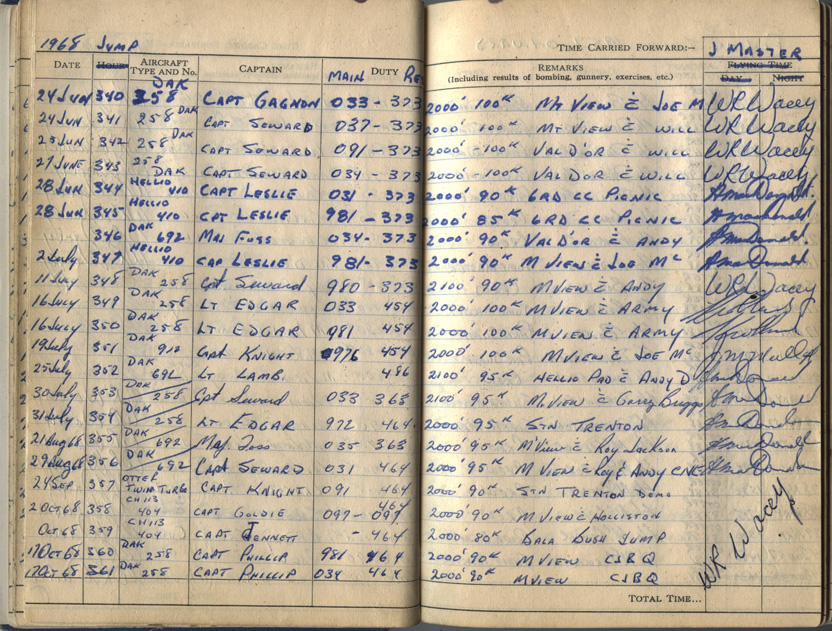 1968 JUMP
TIME CARRIED FORWARD:— J MASTER
DATE HOUR AIRCRAFT TYPE AND No. CAPTAIN MAIN DUTY RES REMARKS (Including results of bombing, gunnery, exercises, etc.) FLYING TIME DAY NIGHT
24 JUN 340 DAK 258 CAPT GAGNON 033 - 373 2000' 100K MT VIEW & JOE M WR Wacey
24 JUN 341 258 DAK CAPT SEWARD 037 - 373 2000' - 100K MT VIEW & WILL WR Wacey
25 JUN 342 258 DAK CAPT SEWARD 091 - 373 2000' - 100K VAL D'OR & WILL WR Wacey
27 JUNE 343 258 DAK CAPT SEWARD 034 - 373 2000' - 100K VAL D'OR & WILL WR Wacey
28 JUN 344 HELLIO 410 CAPT LESLIE 031 - 373 2000' 90K 6RD CC PICNIC
28 JUN 345 HELLIO 410 CPT LESLIE 981 - 373 2000' 85K 6RD CC PICNIC
346 DAK 692 MAJ FOSS 034 - 373 2000' 90K VAL D'OR & ANDY
2 July 347 HELLIO 410 CAP LESLIE 981 - 373 2000' 90K M VIEW & JOE Mc
11 July 348 DAK 258 Cpt Seward 980 - 373 2100' 90K M VIEW & ANDY WR Wacey
16 July 349 DAK 258 LT EDGAR 033 454 2000' 100K M VIEW & ARMY
16 July 350 DAK 258 LT EDGAR 981 454 2000' 100K M VIEW & ARMY
19 July 351 DAK 912 Cpt KNIGHT 0976 454 2000' 100K M VIEW & JOE Mc
25 July 352 DAK 692 LT LAMB. 486 2100' 95K HELLIO PAD & ANDY D
30 July 353 DAK 258 Cpt Seward 033 363 2100' 95K M VIEW & Garry Briggs
31 July 354 DAK 258 LT EDGAR 972 464 2000' 95K STN TRENTON
21 Aug 68 355 DAK 692 Maj Foss 035 363 2000' 95K M View & Roy Jackson
29 Aug 68 356 DAK 692 Capt SEWARD 031 464 2000' 95K M VIEW & Roy & ANDY
24 SEP 357 OTTER TWIN TURBO CAPT KNIGHT 091 464 2000' 90K STN TRENTON DEMO
2 Oct 68 358 CH113 404 CAPT GOLDIE 097 - 097 464 2000' 90K M VIEW & HOLLISTON
Oct 68 359 CH113 404 CAPT JENNETT - 464 2000' 80K BALA BUSH JUMP WR Wacey
17 Oct 68 360 DAK 258 CAPT PHILLIP 981 464 2000' 90K M VIEW CJBQ
17 Oct 68 361 DAK 258 CAPT PHILLIP 034 464 2000' 90K M VIEW CJBQ
TOTAL TIME...